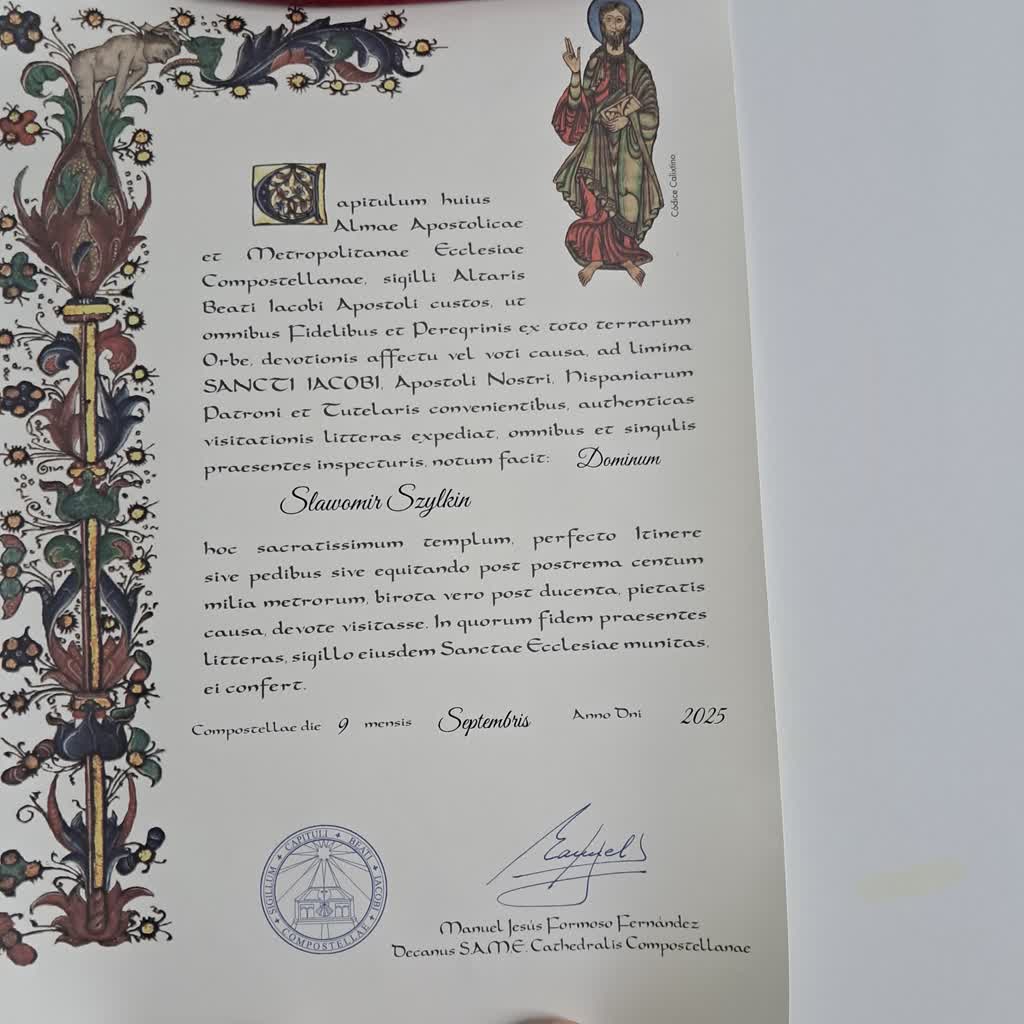 Códice Calixtino
Capitulum huius
Almae Apostolicae
et Metropolitanae Ecclesiae
Compostellanae, sigilli Altaris
Beati Iacobi Apostoli custos, ut
omnibus Fidelibus et Peregrinis ex toto terrarum
Orbe, devotionis affectu vel voti causa, ad limina
SANCTI IACOBI, Apostoli Nostri, Hispaniarum
Patroni et Tutelaris convenientibus, authenticas
visitationis litteras expediat, omnibus et singulis
praesentes inspecturis, notum facit: Dominum
Slawomir Szylkin
hoc sacratissimum templum, perfecto Itinere
sive pedibus sive equitando post postrema centum
milia metrorum, birota vero post ducenta, pietatis
causa, devote visitasse. In quorum fidem praesentes
litteras, sigillo eiusdem Sanctae Ecclesiae munitas,
ei confert.
Compostellae die 9 mensis Septembris Anno Dni 2025
SIGILLUM + CAPITULI + BEATI + IACOBI + COMPOSTELLAE +
Manuel Jesús Formoso Fernández
Decanus S.A.M.E. Cathedralis Compostellanae